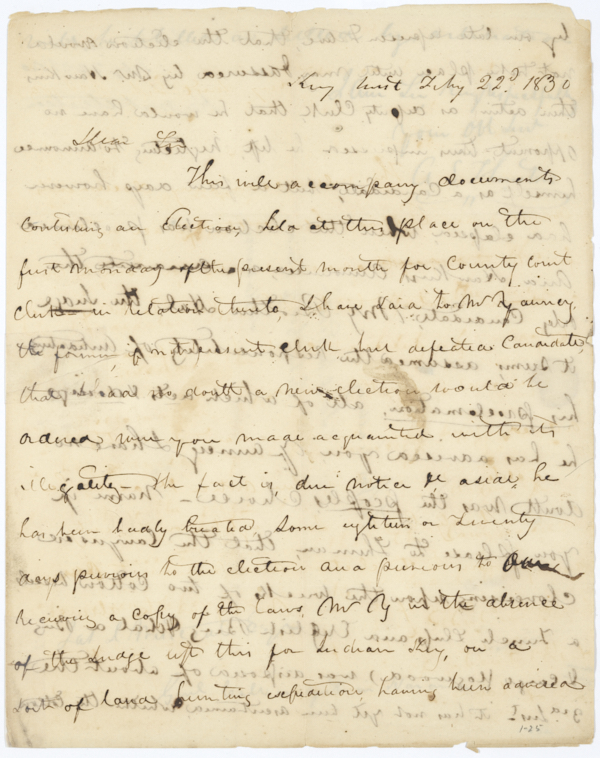 Key West Feby 22d 1830
Dear Sir
This will accompany documents
contesting an Election, held at this place on the
first monday of the present month for County Court
Clerk in relation thereto, I have said to Mr
the former, present clerk but defeated Candidate,
that I had no doubt a new election would be
ordered when you made acquainted with its
illegality The fact is, due notice aside, he
has been badly treated, some eighteen or Twenty
days previous to the election and previous to our
receiving a copy of the Laws, Mr Ry in the absence
of the Judge left this for Indian Key, on a
sort of land hunting expedition having been advised
1-25